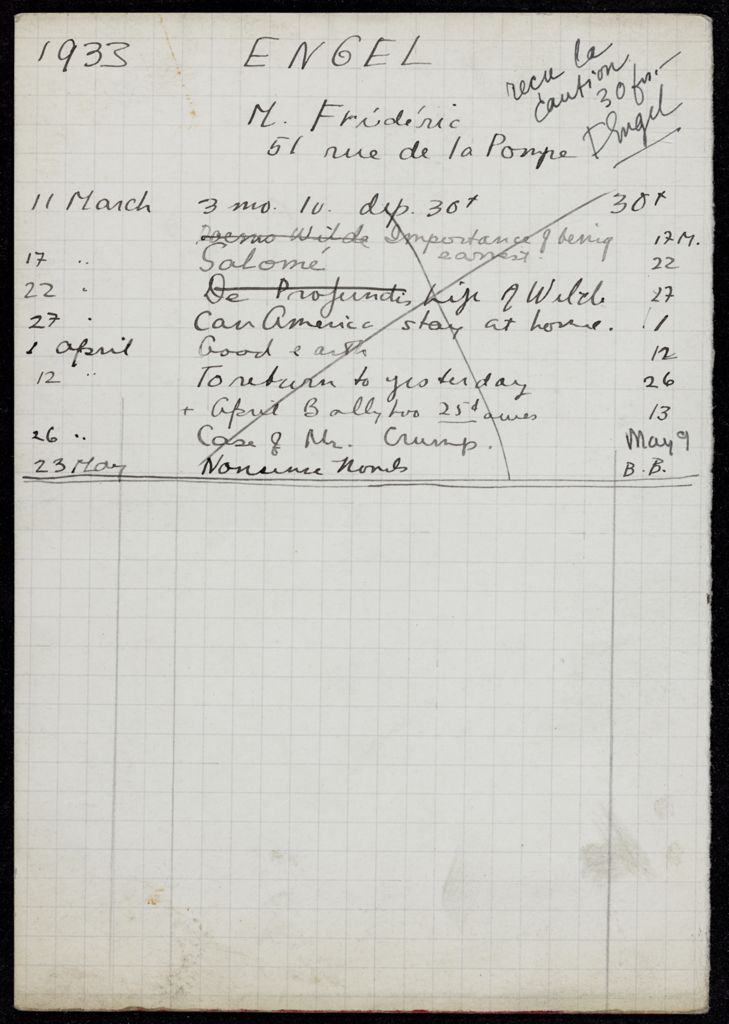 1933 ENGEL
recu la
caution
30 frs.—
F Engel
M. Frédéric
51 rue de la Pompe
11 March 3 mo. 1v. dep. 30f 30f
Wilde Importance of being 17 M.
earnest.
17 " Salomé 22
22 " De Profundis Life of Wilde 27
27 " Can America stay at home. 1
1 April Good earth 12
12 " To return to yesterday 26
+ April Ballyhoo 25d 13
26 " Case of Mr. Crump. May 9
23 May Nonsense Novels B.B.